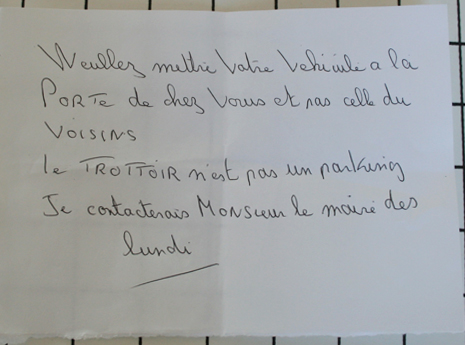 Weullez mettre Votre Vehicule a la
PORTe de chez Vous et pas celle du
VOISINS
le TROTTOIR n'est pas un parking
Je contacterais MONSIEUR le maire des
lundi